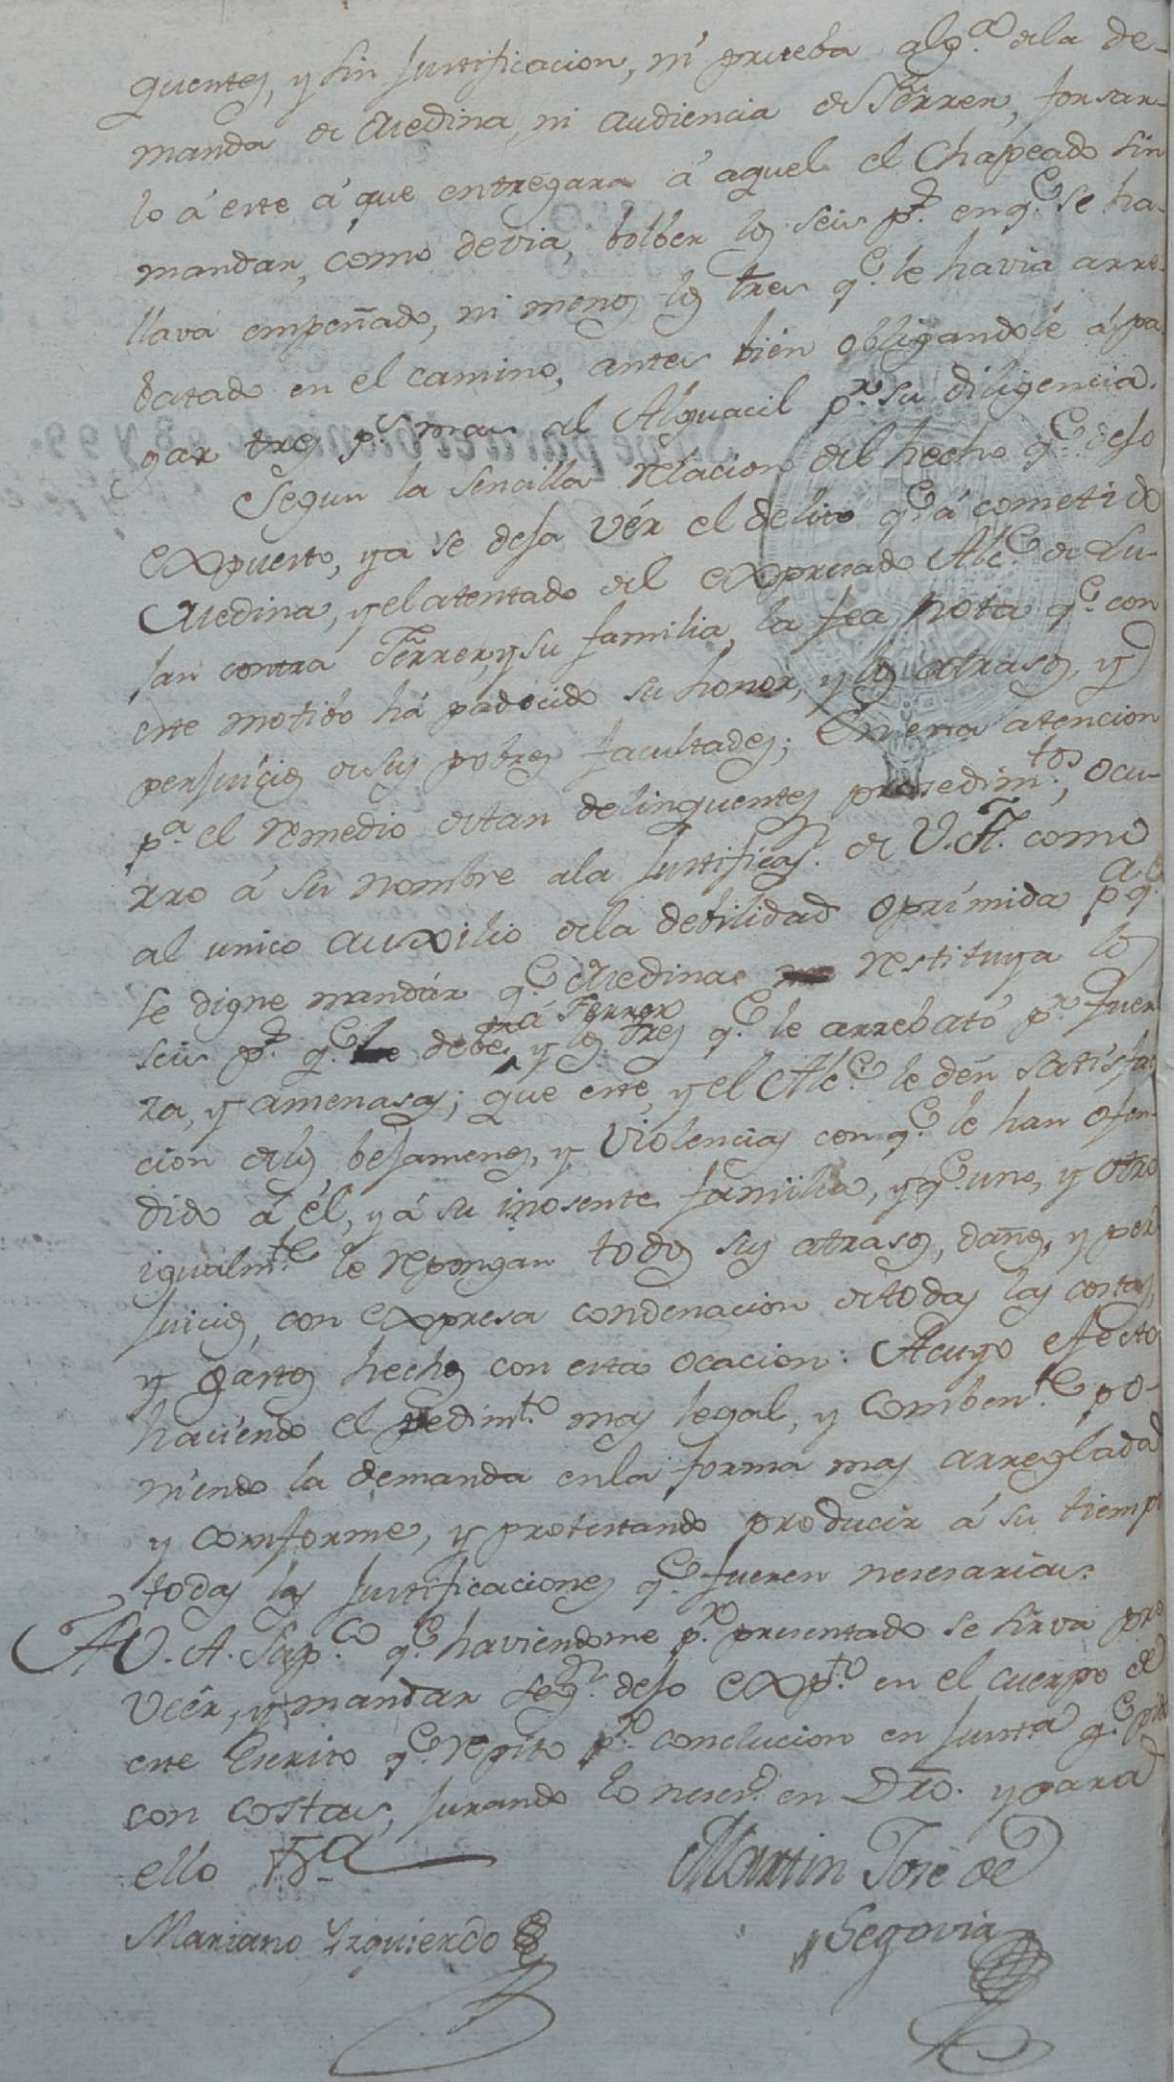 quentes, y sin justificacion, ni prueba alg.ª dela de-
manda de Medina, ni audiencia de Ferrer, forsar-
lo á este á que entregara á aquel el Chapeado sin
mandar, como devia, bolber los seis p.s en q.e se ha-
llava empeñado, ni menos los tres q.e le havia arre-
batado en el camino, antes bien obligandole á pa
gar tres p.s mas al Alguacil p.r su diligencia.
Segun la sencilla relacion del hecho q.e dejo
expuesto, ya se deja vér el delito q.e á cometido
Medina, y el atentado del expresado Alc.e de Lu-
jan contra Ferrer, y su familia, la fea nota q.e con
este motibo há padecido su honor, y los atrasos, y
perjuicios de sus pobres facultades; En esta atencion
p.a el remedio de tan delinquentes prosedim.tos, ocu-
rro á su nombre ala justificas.n de V.A. como
al unico auxilio dela debilidad oprimida p.a q.e
se digne mandár q.e Medina restituya los
seis p.s q.e debe á Ferrer, y los tres q.e le arrebató p.r fuer
za, y amenasas; que este, y el Alc.e le dén satisfac
cion delos bejamenes, y violencias con q.e le han ofen-
dido á él, y á su inosente familia, y q.e uno, y otro
igualm.te le repongan todos sus atrasos, daños, y per
juicios, con expresa condenacion de todas las costas,
y gastos hechos con esta ocacion: Acuyo efecto
haciendo el pedim.to mas legal, y comben.te po-
niendo la demanda enla forma mas arreglada
y comforme, y protestando producir á su tiempo
todas las justificaciones q.e fueren nesesarias.
A V. A. Sup.co q.e haviendome p.r presentado se sirva pro
veér, y mandar seg.n dejo exp.to en el cuerpo de
este Escrito q.e repito p.r conclucion en justa q.e pido
con costas, jurando lo neses.o en Dro. y para
ello &.a
Martin José de
Mariano Yzquierdo
Segovia